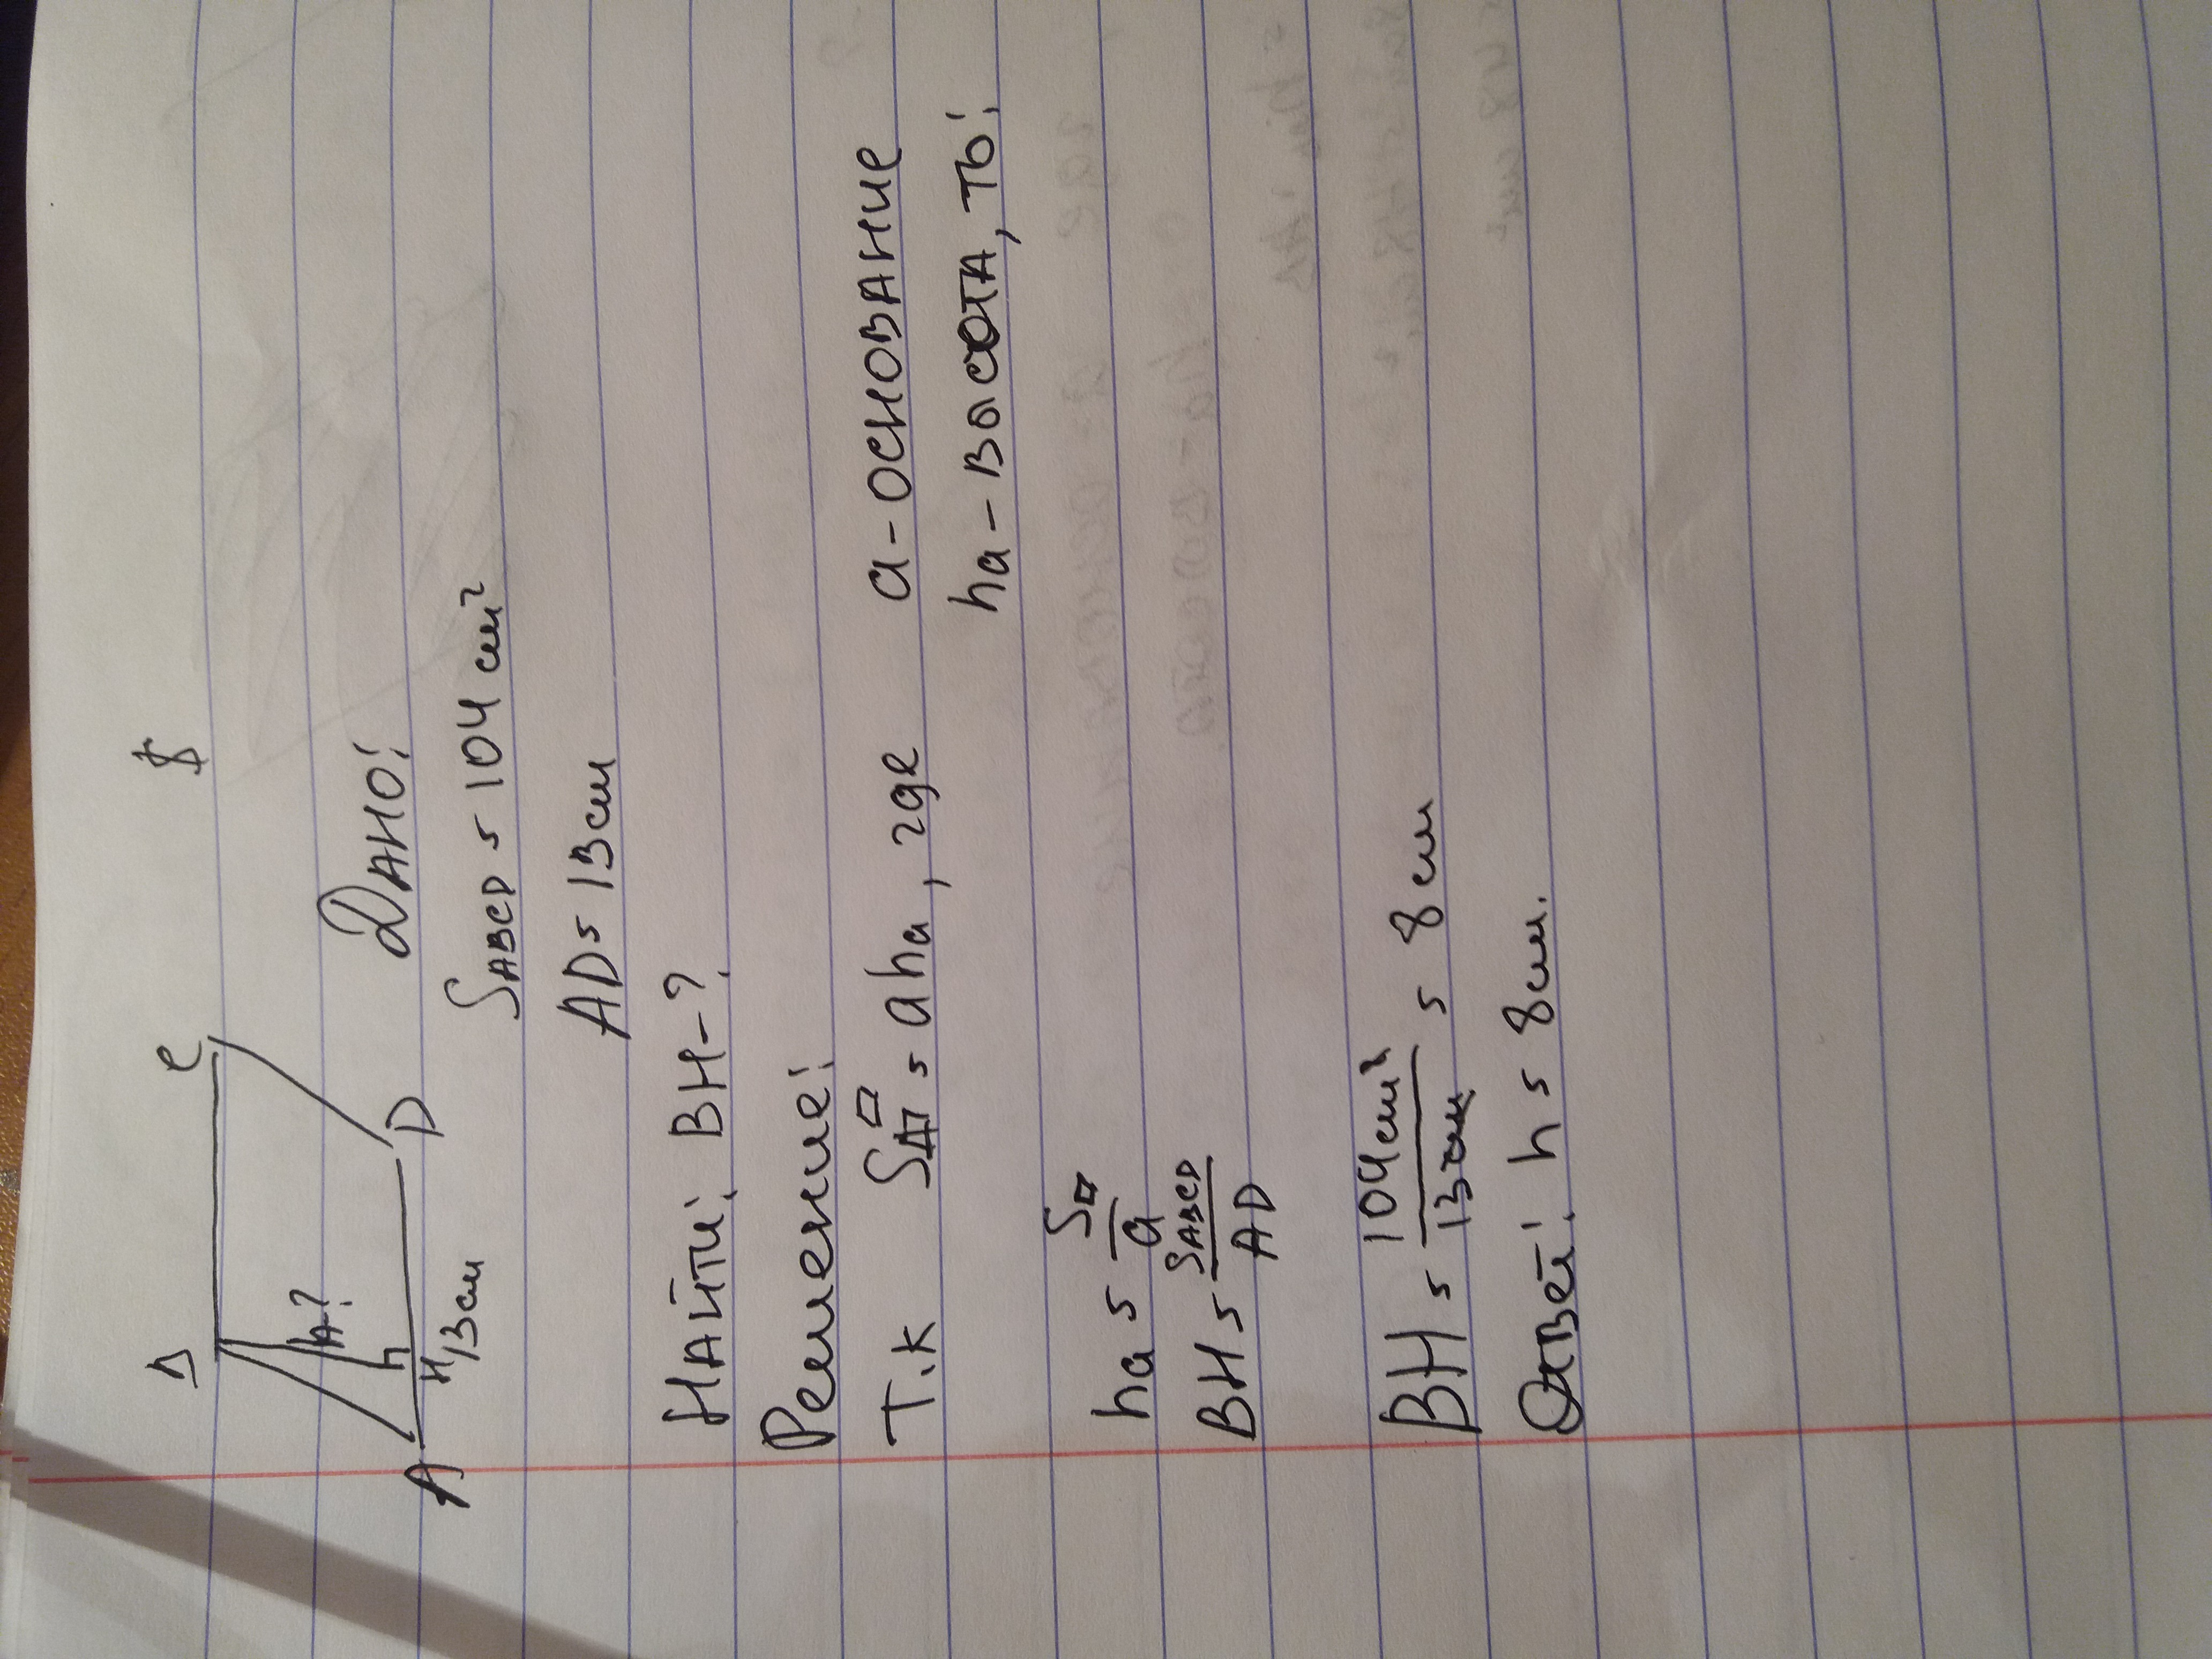 C
A
D
h-?
H
13 см
Дано:
SABCD = 104 см²
AD = 13 см
Найти: BH-?
Решение:
Т.к S▱ = aha, где a - основание
ha - высота, то:
ha = S▱/a
BH = SABCD/AD
BH = 104 см²/13 см = 8 см
Ответ: h = 8 см.